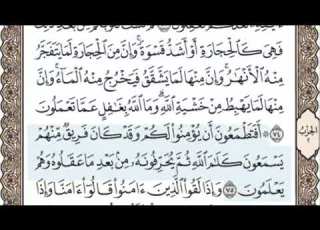 فَهِيَ كَالْحِجَارَةِ أَوْ أَشَدُّ قَسْوَةً وَإِنَّ مِنَ الْحِجَارَةِ لَمَا يَتَفَجَّرُ
مِنْهُ الْأَنْهَارُ وَإِنَّ مِنْهَا لَمَا يَشَّقَّقُ فَيَخْرُجُ مِنْهُ الْمَاءُ وَإِنَّ
مِنْهَا لَمَا يَهْبِطُ مِنْ خَشْيَةِ اللَّهِ وَمَا اللَّهُ بِغَافِلٍ عَمَّا تَعْمَلُونَ
٧٤ أَفَتَطْمَعُونَ أَنْ يُؤْمِنُوا لَكُمْ وَقَدْ كَانَ فَرِيقٌ مِنْهُمْ
يَسْمَعُونَ كَلَامَ اللَّهِ ثُمَّ يُحَرِّفُونَهُ مِنْ بَعْدِ مَا عَقَلُوهُ وَهُمْ
يَعْلَمُونَ ٧٥ وَإِذَا لَقُوا الَّذِينَ آمَنُوا قَالُوا آمَنَّا وَإِذَا
الحزب